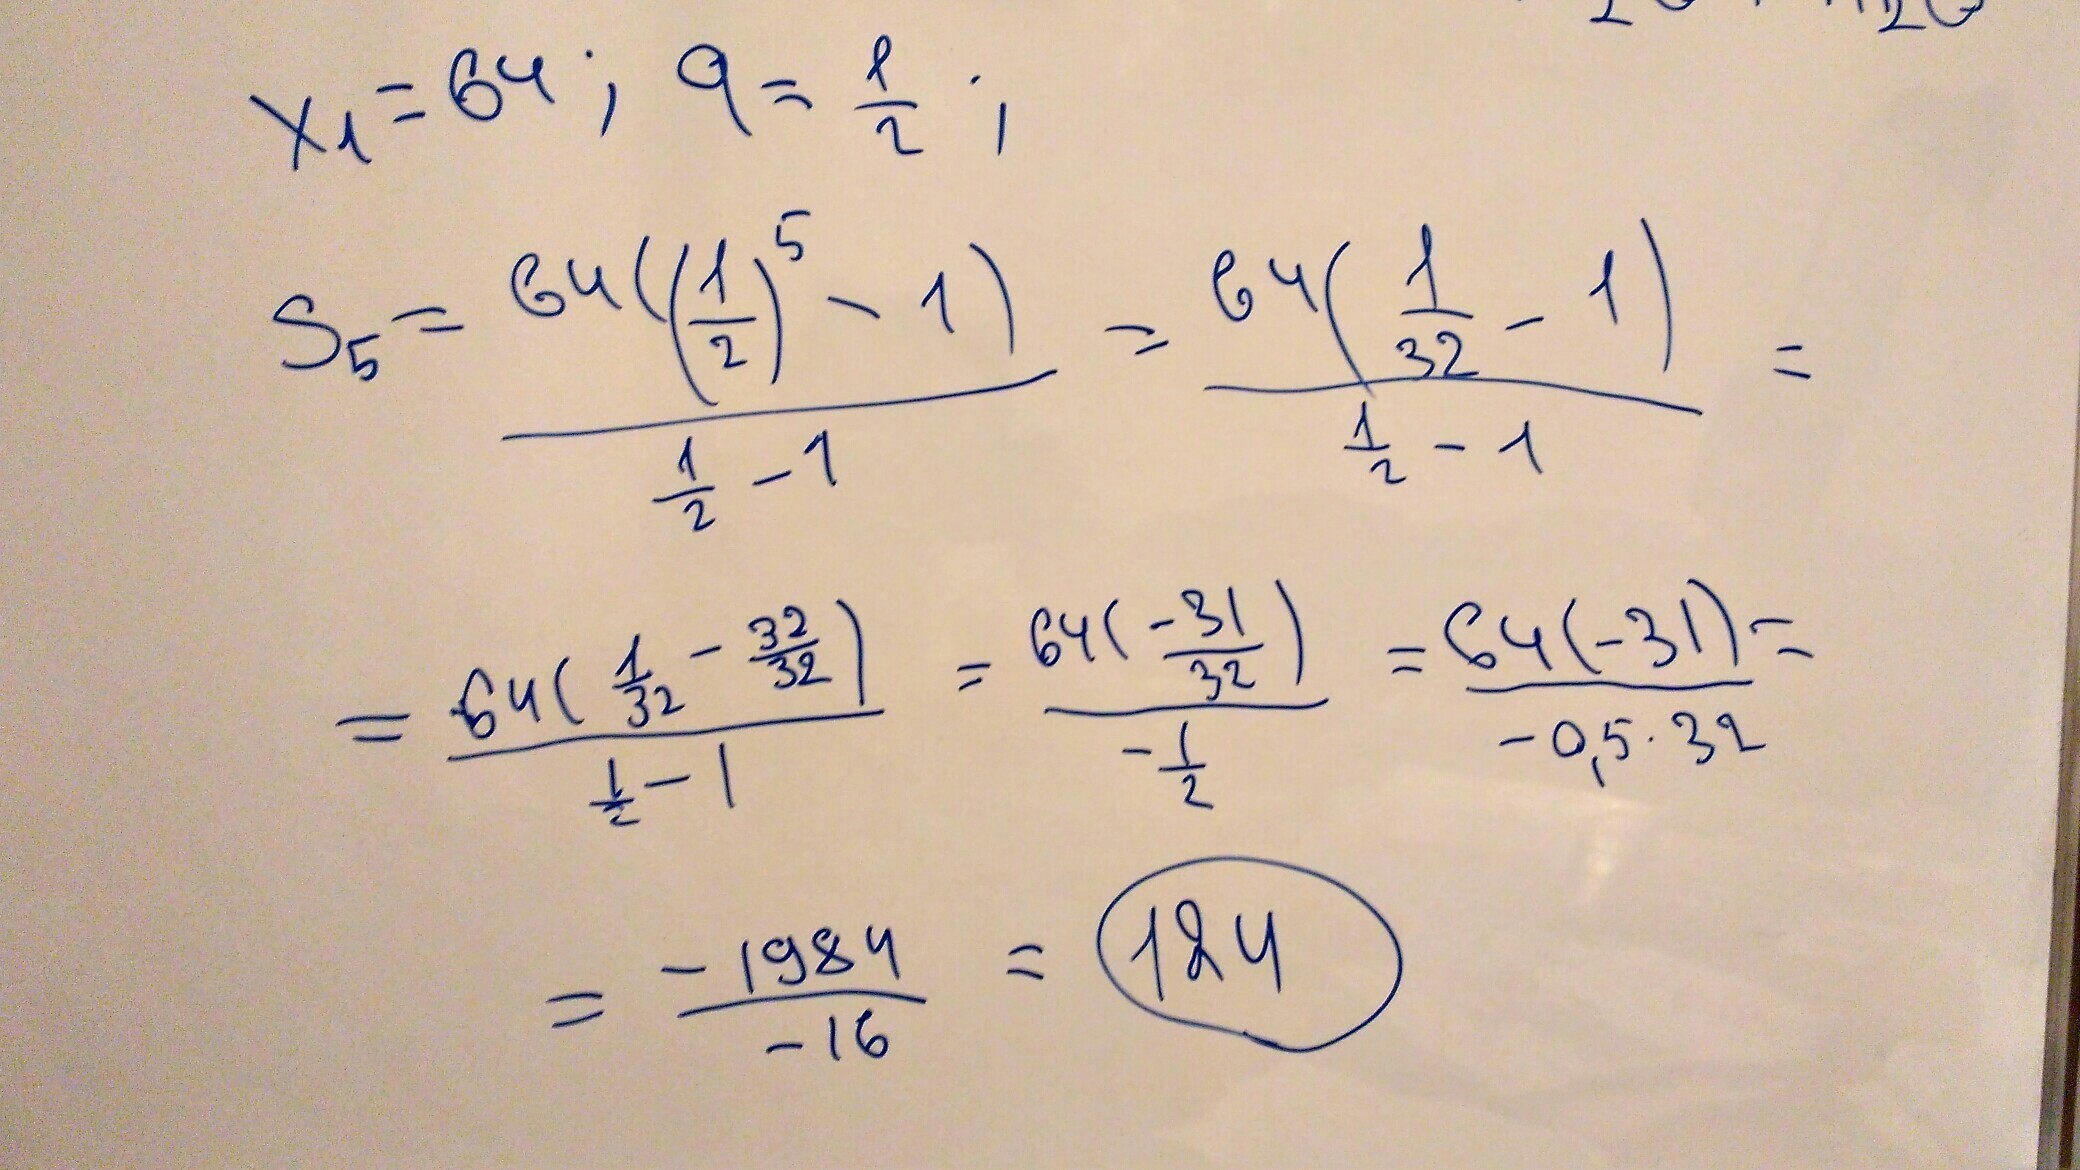 x₁ = 64; q = 1/2;
S₅ = 64((1/2)⁵ - 1) / (1/2 - 1) = 64(1/32 - 1) / (1/2 - 1) =
= 64(1/32 - 32/32) / (1/2 - 1) = 64(-31/32) / (-1/2) = 64(-31) / (-0,5·32) =
= -1984 / -16 = 124